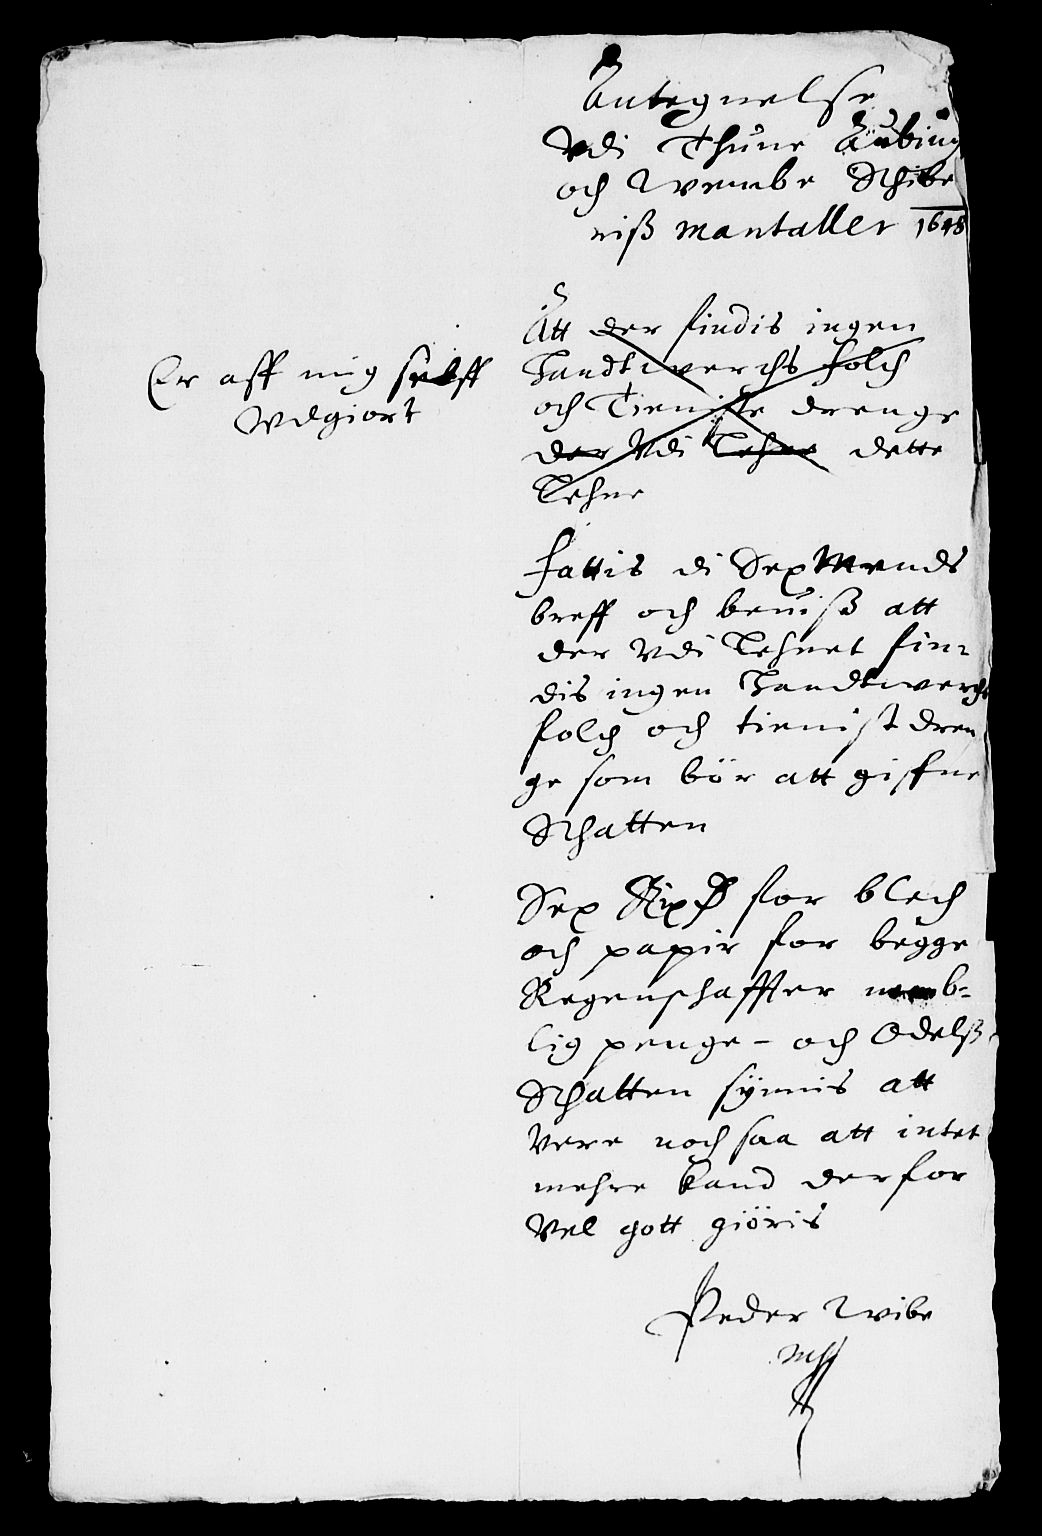 Antegnelse
Vdi Thune Aabiug
och Wembe Schibe
riß mantaller 1648
Att der findis ingen
Handtwerchs folch
och Tieniste drenge
der Vdi Lehne dette
Lehne
Er aff mig selff
Vdgiort
Fattis di Sex Mends
breff och beuiß att
der Vdi Lehnet fin-
dis ingen Handtwerchs
folch och tienist dren
ge som bör att giffue
Schatten
Sex Rix for blech
och papir for begge
Regenschaffter nemb-
lig penge- och Odelß
Schatten synnis att
Vere noch saa att intet
mehre kand derfor
Vel gott giöris
Peder Wibe